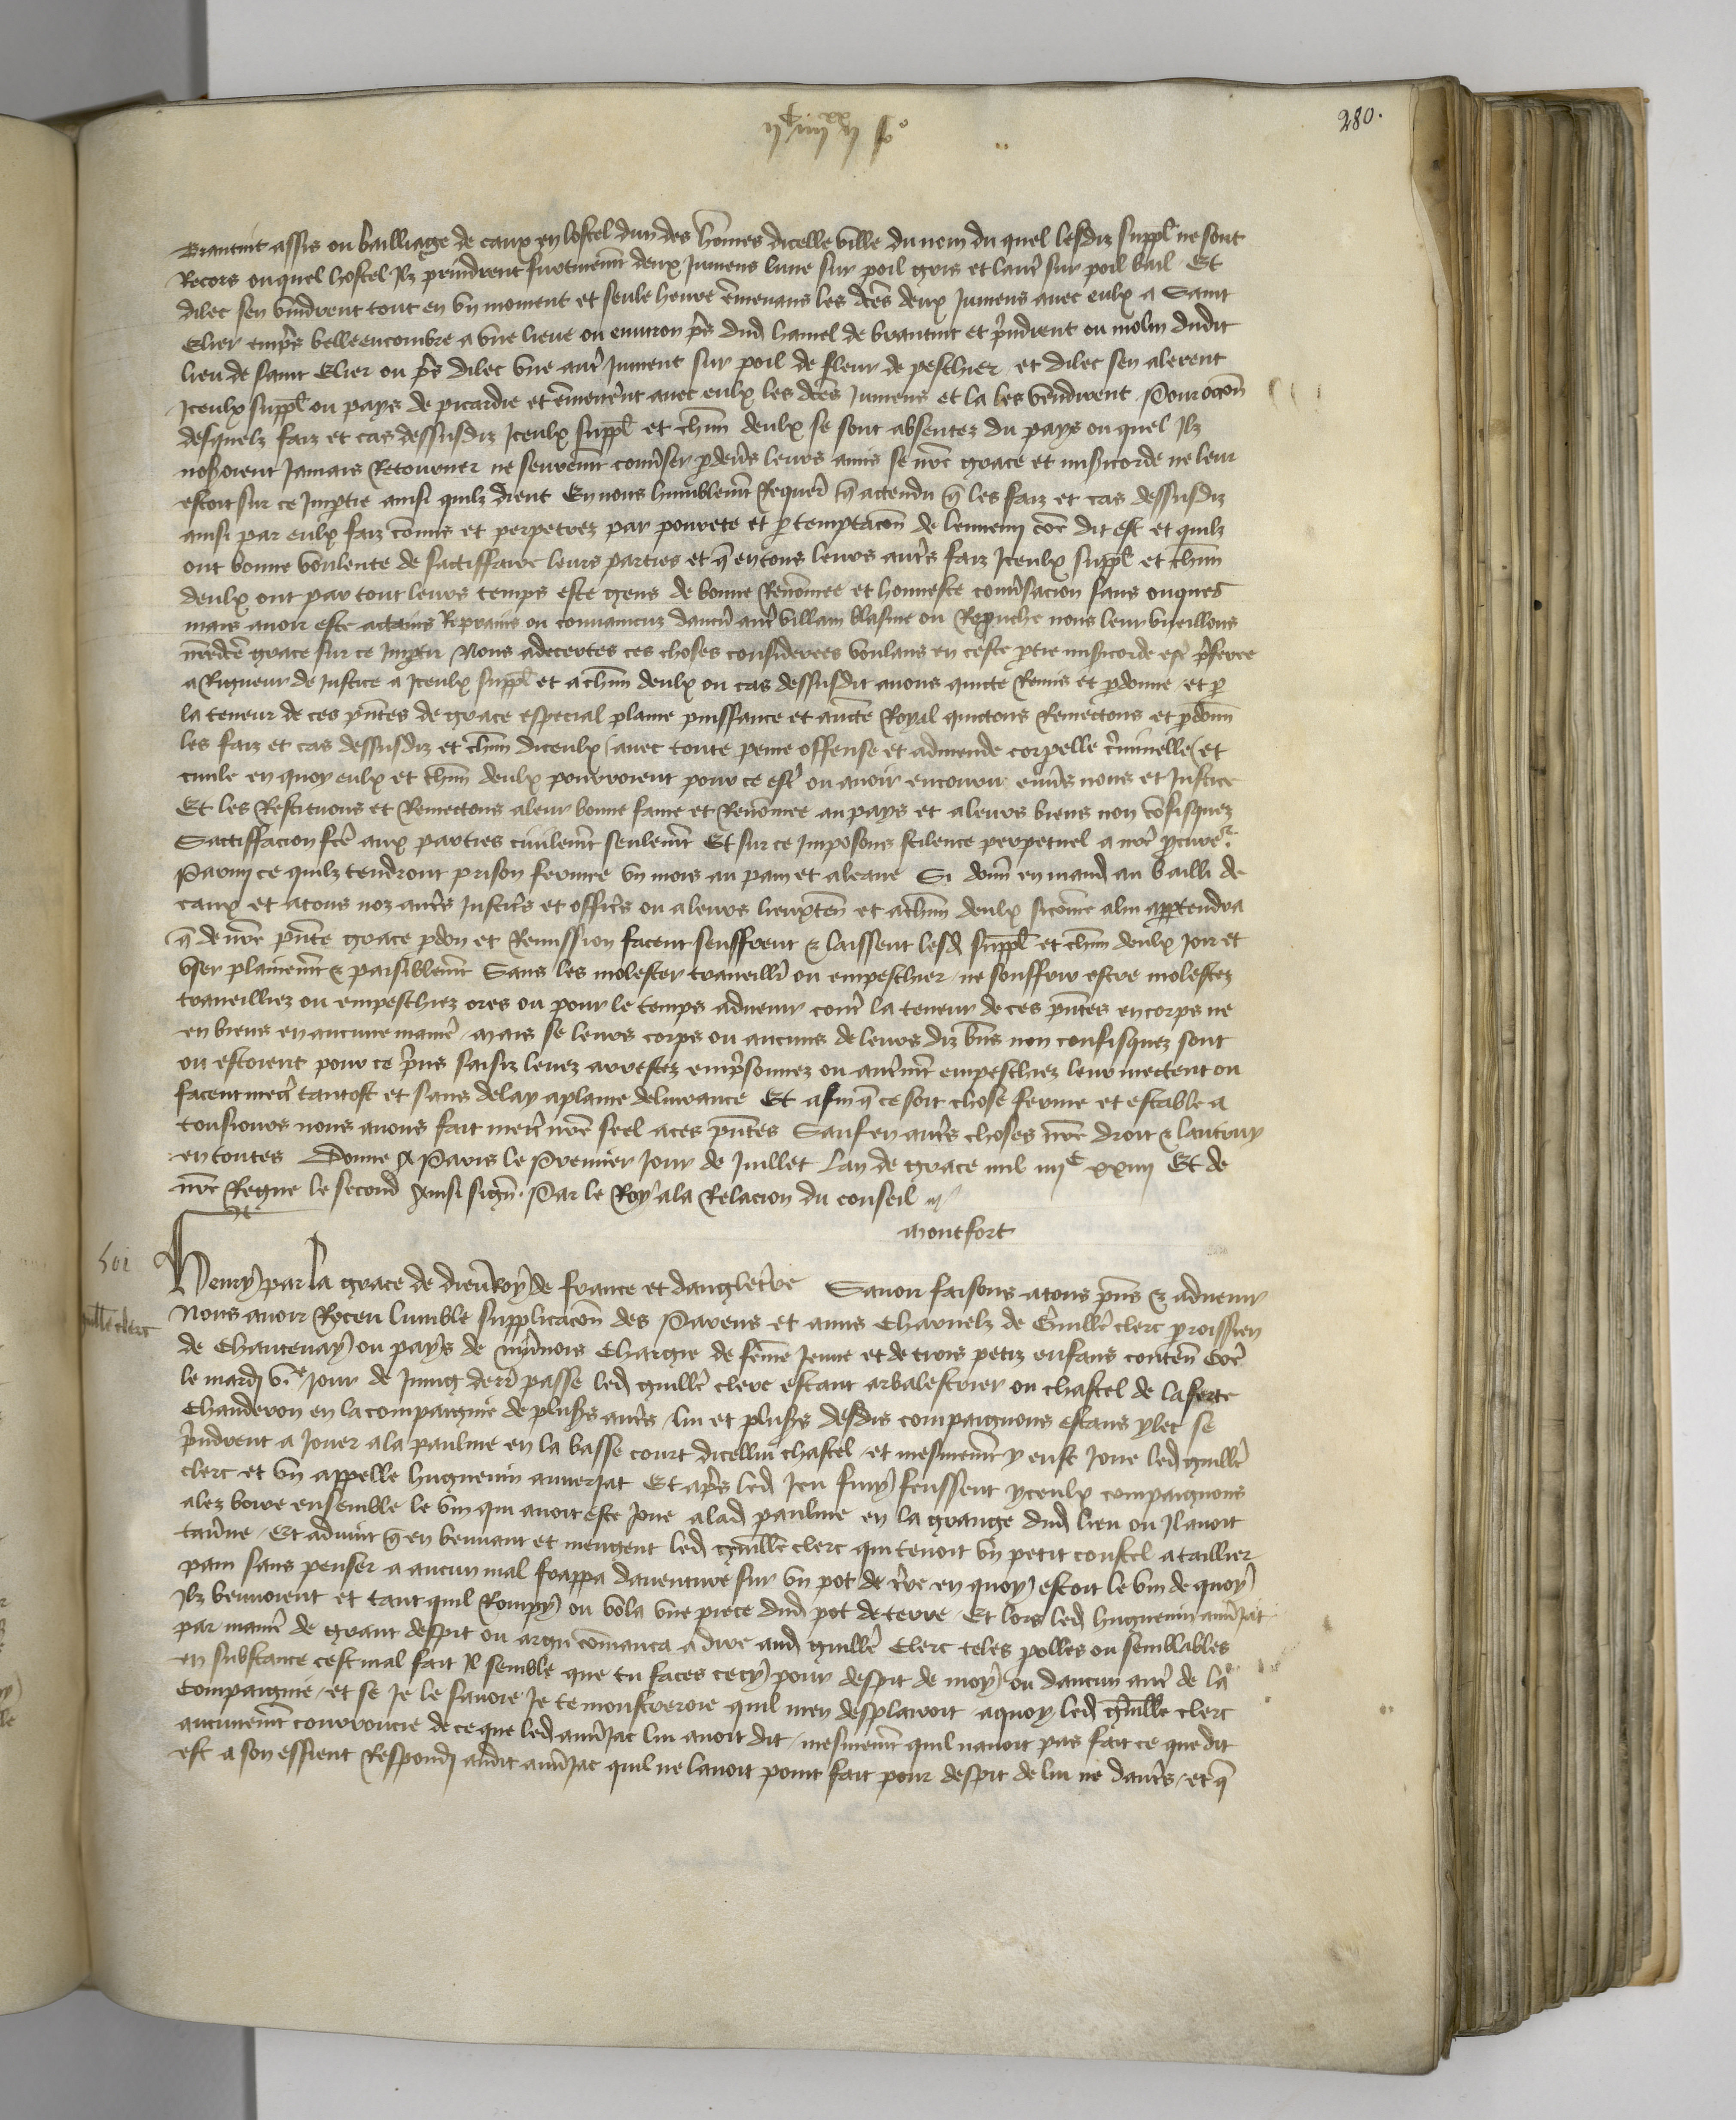 280.
Brautuit assis ou bailliage de caux en lostel dun des hommes dicelle ville du nom du quel lesdiz suppl ne sont
Recors ouquel hostel Ilz prindrent furtivemt deux Jumens lune sur poil gris et laut sur poil bail Et
dilec sen vindrent tout en vn moment et seule heure emmenans les dctes deux Jumens auec eulx a Saint
Elier empres belleencombre a vne lieue ou enuiron pres dud hamel de brautuit et prindrent ou molin dudit
lieu de saint Elier ou pres dilec vne autre Jument sur poil de fleur de peschier et dilec sen alerent
Iceulx suppl ou pays de picardie et emmenerent auec eulx les dctes Jumens et la les vendirent Pour occon
desquelz faiz et cas dessusdiz Iceulx suppl et chun deulx se sont absentez du pays ou quel Ilz
noseroient Jamais Retourner ne seurement conuser pdeuers leurs amis se nre grace et misicorde ne leur
estoit sur ce Imptie ainsi quilz dient En nous humblemt Requert q actendu q les faiz et cas dessusdiz
ainsi par eulx faiz commis et perpetrez par pourete et p temptacon de lennemi coe dit est et quilz
ont bonne voulente de sactiffaire leurs parties et q en tous leurs autres faiz Iceulx suppl et chun
deulx ont par tout leurs temps este gens de bonne Renommee et honneste conusacion sans onques
mais auoir este actains Reprains ou conuaincuz daucun autre villain blasme ou Reprouche nous leur vueillons
nredce grace sur ce Imptir Nous adecertes ces choses considerees voulans en ceste ptie misicorde estre pferee
a Rigueur de Justice a Iceulx suppl et a chun deulx ou cas dessusdit auons quicte Remis et pdonne et p
la teneur de ces pntes de grace especial plaine puissance et aucte Royal quictons Remectons et pdonn
les faiz et cas dessusdiz et chun diceulx auec toute peine offense et admende corpelle criminelle et
ciuile en quoy eulx et chun deulx pourroient pour ce estre ou auoir encouru enuers nous et Justice
Et les Restituons et Remectons a leur bonne fame et Renommee au pays et a leurs biens non confisquez
Sactiffacion fcte aux parties ciuilemt seulemt Et sur ce Imposons silence perpetuel a nre pcureur
Parmi ce quilz tendront prison fermee vn mois au pain et a leaue Si donn en mand au bailli de
caux et a tous noz autres Justicrs et officrs ou a leurs lieuxten et a chun deulx sicomme a lui appartendra
q de nre pnte grace pdon et Remission facent seuffrent & laissent lesd suppl et chun deulx Joir et
vser plainemt & paisiblemt Sans les molester traueillier ou empeschier ne souffrir estre molestez
traueilliez ou empeschiez ores ou pour le temps aduenir contre la teneur de ces pntes en corps ne
en biens en aucune maniere mais se leurs corps ou aucuns de leurs diz biens non confisquez sont
ou estoient pour ce prins saisiz leuez arrestez emprisonnez ou autremt empeschiez leur mectent ou
facent mectre tantost et sans delay a plaine deliurance Et afin q ce soit chose ferme et estable a
tousiours nous auons fait mectre nre seel a ces pntes Sauf en autres choses nre droit & lautruy
en toutes Donne A Paris le Premier Jour de Juillet Lan de grace mil iiiic xxiiii Et de
nre Regne le second Ainsi sign Par le Roy a la Relacion du conseil
montfort
Henry par la grace de dieu Roy de france et dangleterre Sauoir faisons a tous pns & aduenir
Guille clerc
Nous auoir Receu lumble supplicacon des Parens et amis Charnelz de Guille clerc proissien
de Chantenay ou pays de niuernois Chargie de femme Jeune et de trois petiz enfans conten Coe
le mardi vie Jour de Juing derr passe led guille clerc estant arbalestrier ou chastel de la ferte
Chauderon en la compaignie de pluss autres lui et pluss desdis compaignons estans ylec se
prindrent a Jouer a la paulme en la basse court dicellui chastel et mesmemt y eust Joue led guille
clerc et vn appelle huguenin auuerjat Et apres led Jeu finy feussent yceulx compaignons
alez boire ensemble le vin qui auoit este Joue a lad paulme en la grange dud lieu ou Il auoit
tauerne Et aduint q en beuuant et mengent led guille clerc qui tenoit vn petit coustel a taillier
pain sans penser a aucun mal frappa dauenture sur vn pot de terre en quoy estoit le vin de quoy
Ilz beuuoient et tant quil Rompy ou vola vne piece dud pot de terre Et lors led huguenin auuerjat
par maniere de grant despit ou argu commanca a dire aud guille Clerc teles polles ou semblables
en substance cest mal fait Il semble que tu faces cecy pour despit de moy ou daucun autre de la
Compaignie et se Je le sauoie Je te monstreroie quil men desplairoit a quoy led Guille clerc
aucunemt courroucie de ce que led auuerjac lui auoit dit mesmemt quil nauoit pas fait ce que dit
est a son essient Respondi audit auuerjac quil ne lauoit point fait pour despit de lui ne dautres et q